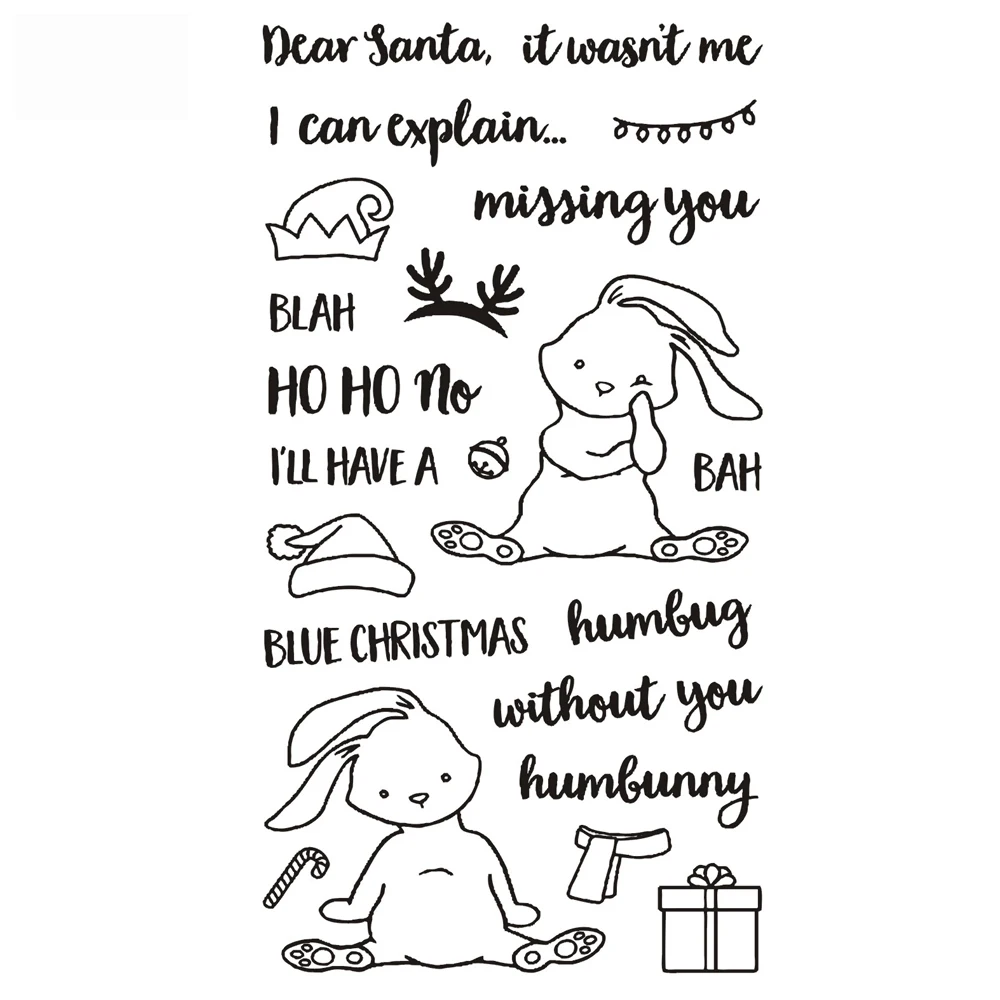 Dear Santa, it wasn't me
I can explain...
missing you
BLAH
HO HO No
I'LL HAVE A
BAH
BLUE CHRISTMAS
humbug
without you
humbunny